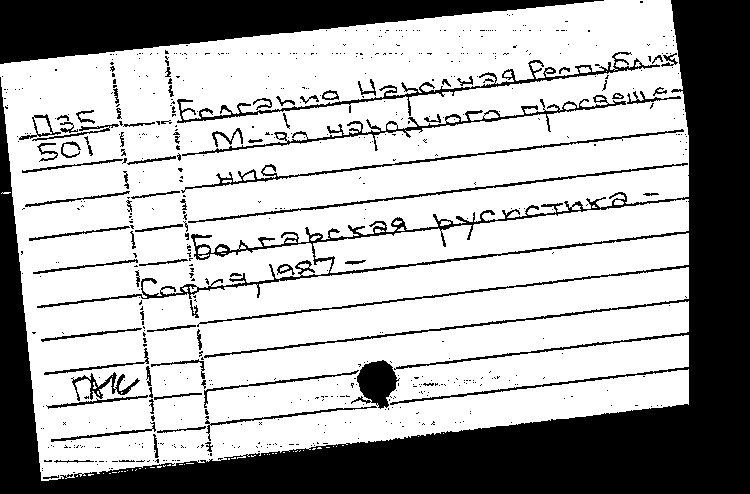 П35
501
Болгария, Народная Республик
М-во народного просвеще-
ния
Болгарская русистика -
София, 1987 -